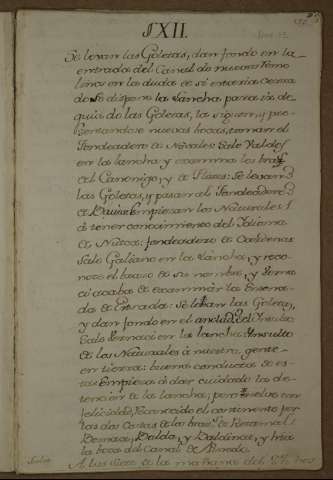 §XII.
Se levan las Goletas, dan fondo en la
entrada del Canal de nuevos Remo
linos en la duda de si estaria cerra
do Se dispone la Lancha para ir de
guia de las Goletas, la siguen, y pre
sentandose nuevas bocas, toman el
Fondeadero de Novales: Sale Valdes
en la lancha y examina los brazos
del Canonigo, y de Flores: Se levan
las Goletas, y pasan al Fondeadero
de Empiezan los Naturales
á tener conocimiento del Idioma
de Nutca: fondeadero de Cardenas
Sale Galiano en la Lancha, y reco
noce el brazo de su nombre, y Vernaci
acaba de examinar la Ensena
da de Entrada: Se levan las Goletas,
y dan fondo en el ancladero del Insulto
Sale Vernaci en la lancha: Insulto
de los Naturales á nuestra gente
en tierra: buena conducta de es
tas Empieza á dar cuidado la de
tencion de la lancha; pero vuelve con
felicidad, Reconocido el continente por
las dos Costas de los brazos de Retamal
Balda, y Baldinat, y hasta
la boca del Canal de
A las siete de la mañana del 27, nos